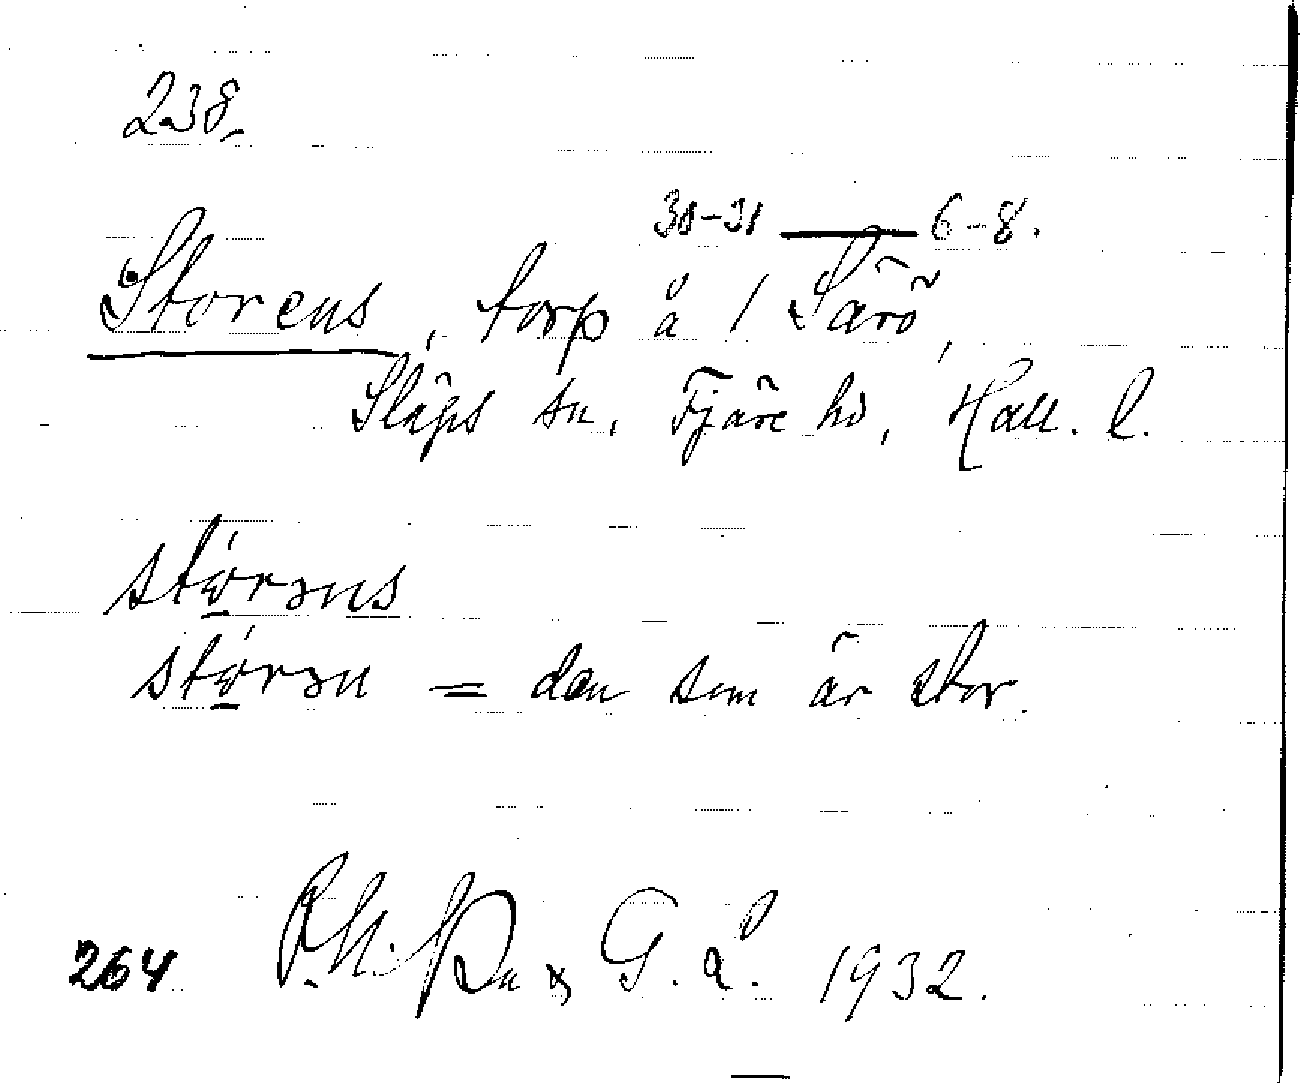 238.
30-31 — 6-8.
Storens, torp å / Särö,
Släps sn, Fjäre hd, Hall. l.
stώ̱rəns
stώ̱rən = den som är stor.
264 G. Å. 1932.